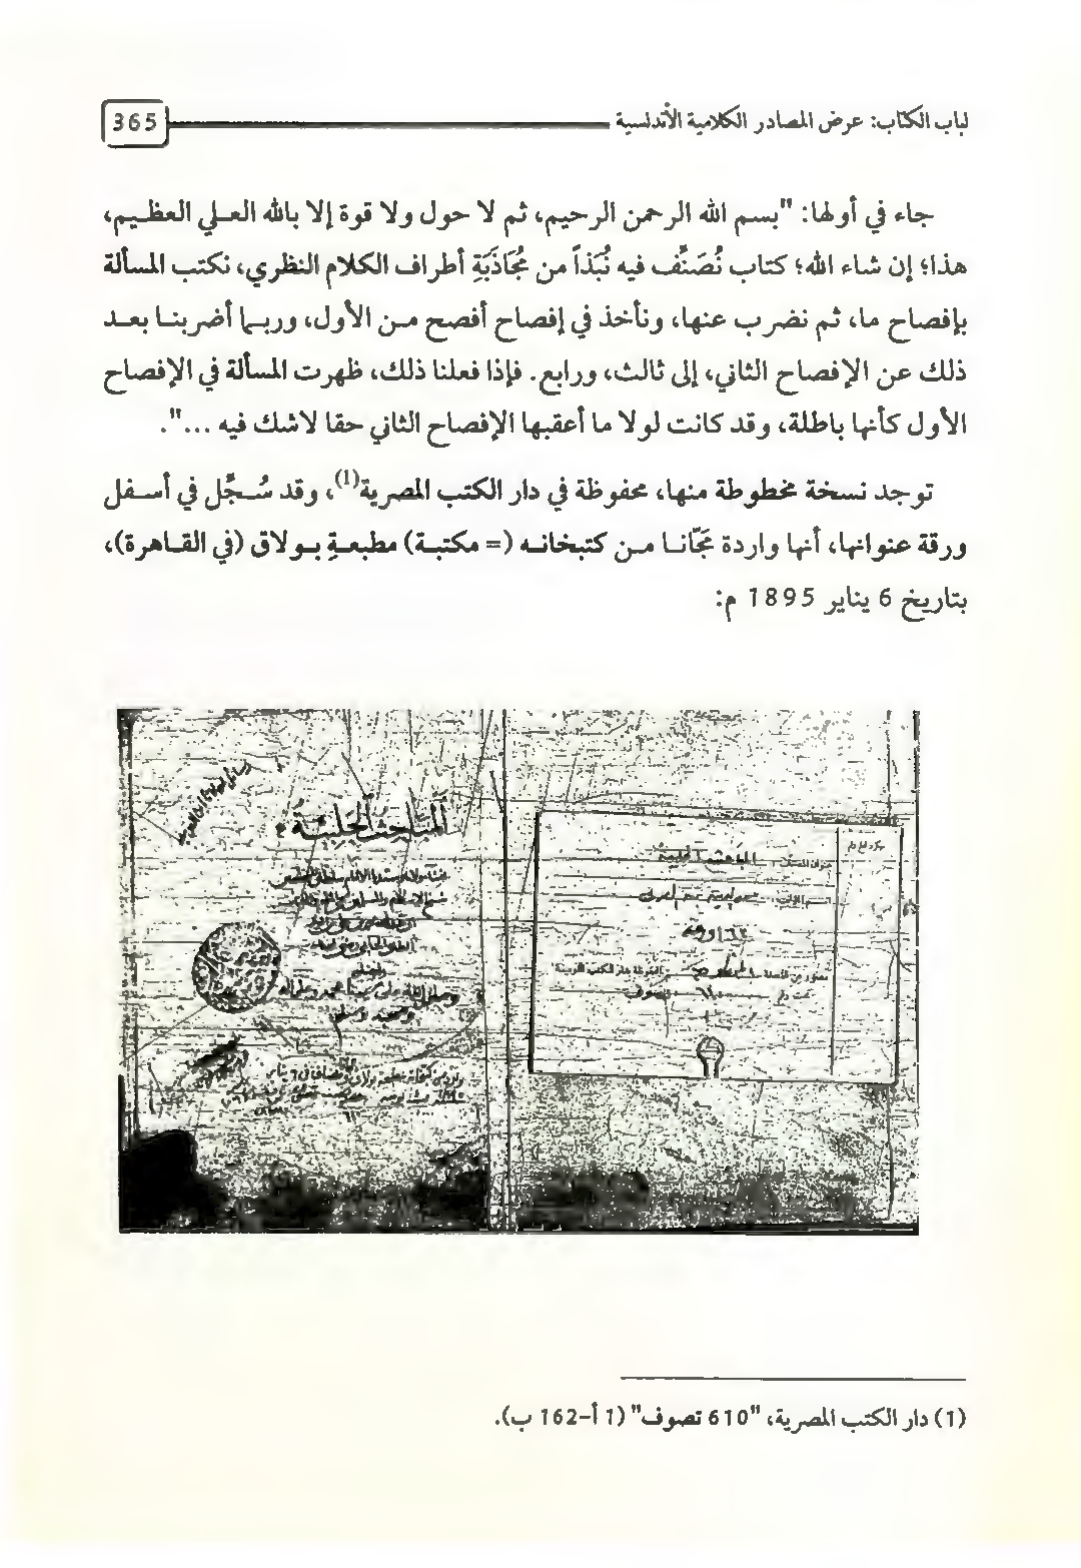 لباب الكتاب: عرض المصادر الكلامية الأندلسية 365
جاء في أولها: "بسم الله الرحمن الرحيم، ثم لا حول ولا قوة إلا بالله العلي العظيم،
هذا؛ إن شاء الله؛ كتاب نُصَنِّف فيه نُبَذاً من مُجَاذَبَةِ أطراف الكلام النظري، نكتب المسألة
بإفصاح ما، ثم نضرب عنها، ونأخذ في إفصاح أفصح من الأول، وربما أضربنا بعد
ذلك عن الإفصاح الثاني، إلى ثالث، ورابع. فإذا فعلنا ذلك، ظهرت المسألة في الإفصاح
الأول كأنها باطلة، وقد كانت لولا ما أعقبها الإفصاح الثاني حقا لاشك فيه ...".
توجد نسخة مخطوطة منها، محفوظة في دار الكتب المصرية(1)، وقد سُجِّل في أسفل
ورقة عنوانها، أنها واردة مَجّانا من كتبخانه (= مكتبة) مطبعةِ بولاق (في القاهرة)،
بتاريخ 6 يناير 1895 م:
المباحث الجلية
١٦٢ ورقة
(1) دار الكتب المصرية، "610 تصوف" (1 أ-162 ب).